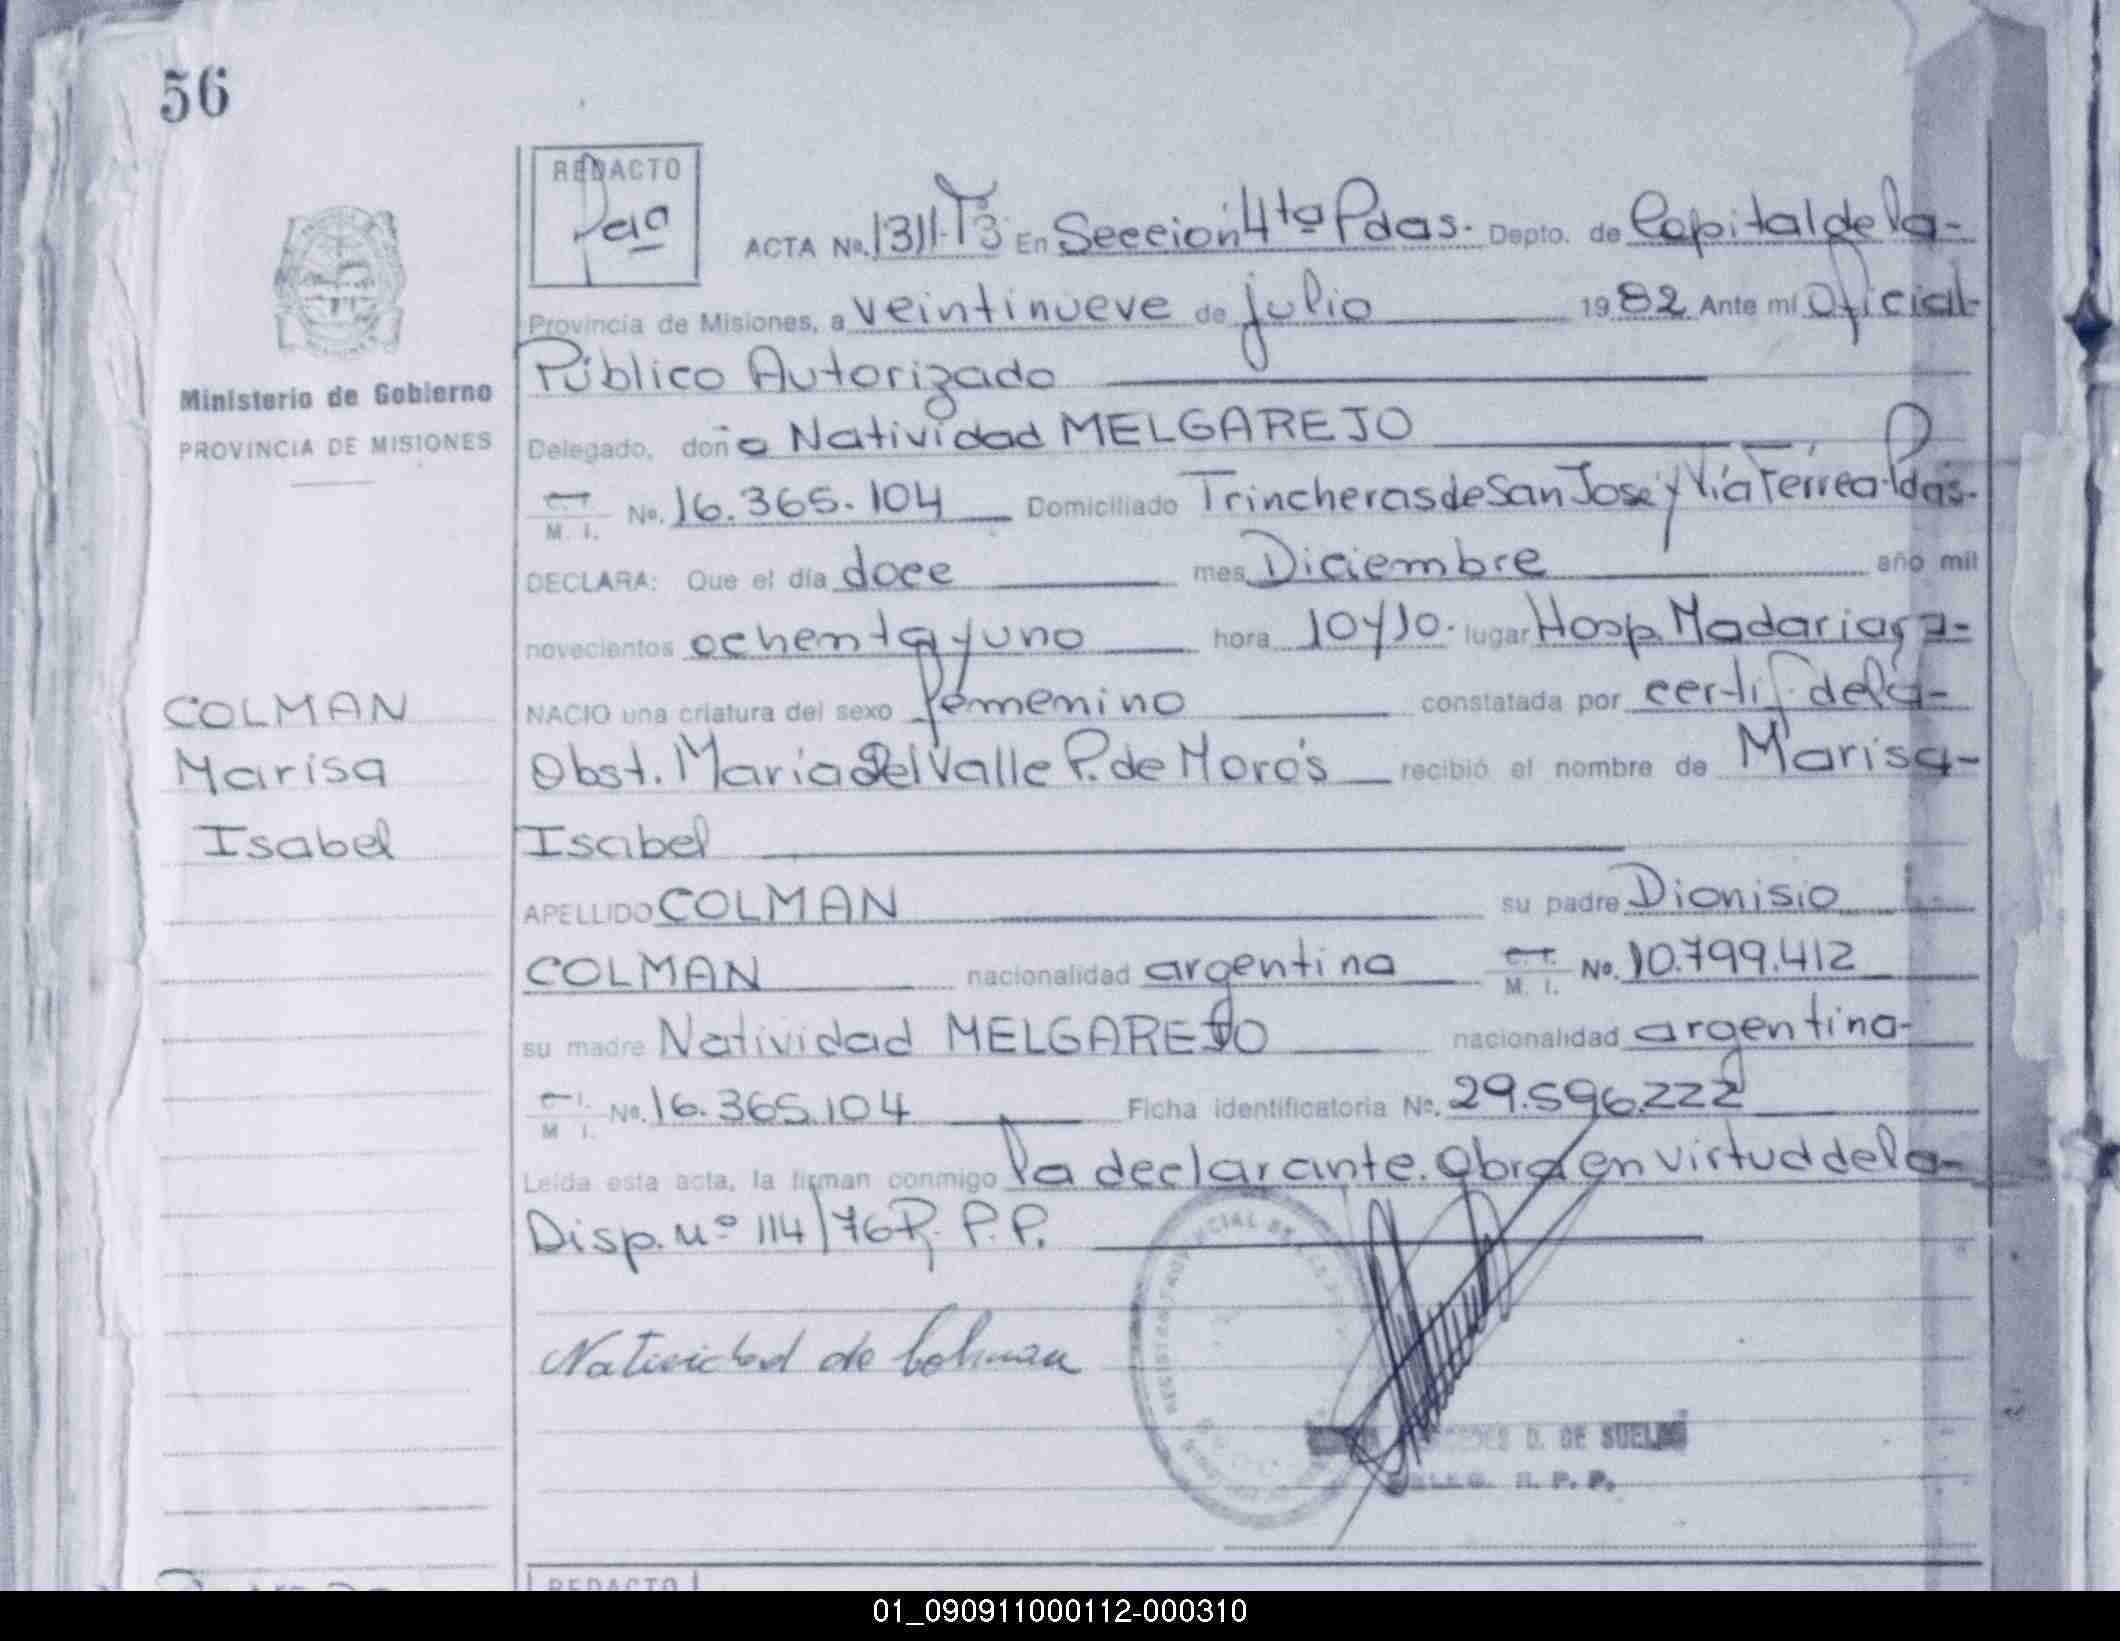 56
REDACTO
ACTA No. 1311-T3 En Sección 4ta Pdas. Depto. de Capital de la-
Provincia de Misiones, a veintinueve de julio 1982 Ante mi Oficial
Público Autorizado
Ministerio de Gobierno
PROVINCIA DE MISIONES
Delegado, doña Natividad MELGAREJO
M. I. No. 16.365.104 Domiciliado Trincheras de San José y Vía Férrea-Pdas.
DECLARA: Que el día doce mes Diciembre año mil
novecientos ochenta y uno hora 10y10. lugar Hosp. Madariaga-
COLMAN
Marisa
Isabel
NACIO una criatura del sexo femenino constatada por certif. de la-
Obst. María del Valle P. de Morós recibió el nombre de Marisa-
Isabel
APELLIDO COLMAN su padre Dionisio
COLMAN nacionalidad argentina C.I. M. I. No. 10.799.412
su madre Natividad MELGAREJO nacionalidad argentina-
M I. No. 16.365.104 Ficha identificatoria No. 29.596.222
Leída esta acta, la firman conmigo la declarante. Obra en virtud de la-
Disp. Nº 114/76 R.P.P.
Natividad de Colman
D. DE SUELDO
R. P. P.
REDACTO
01_090911000112-000310